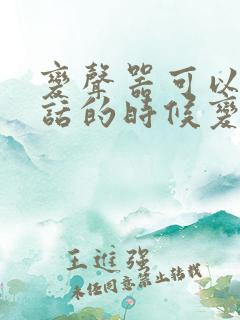 變聲器可以
話的時候變
王進強
未經同意禁止轉載